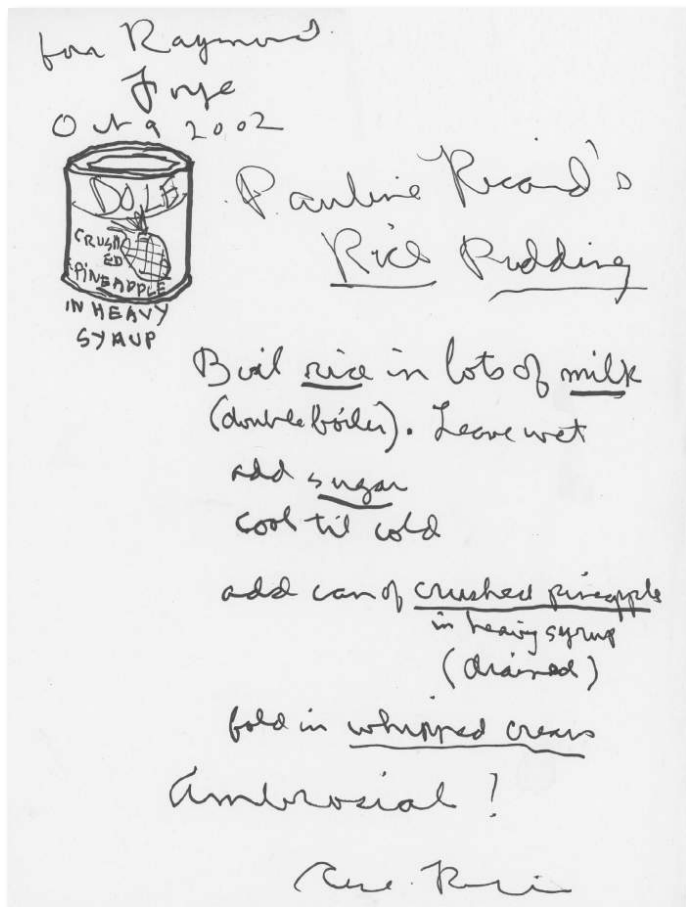 for Raymond
Foye
Oct 9 2002
DOLE
CRUSH
ED
PINEAPPLE
IN HEAVY
SYRUP
Pauline Ricard's
Rice Pudding
Boil rice in lots of milk
(double boiler). Leave wet
add sugar
cool til cold
add can of crushed pineapple
in heavy syrup
(drained)
fold in whipped cream
Ambrosial!
Rene Ricard